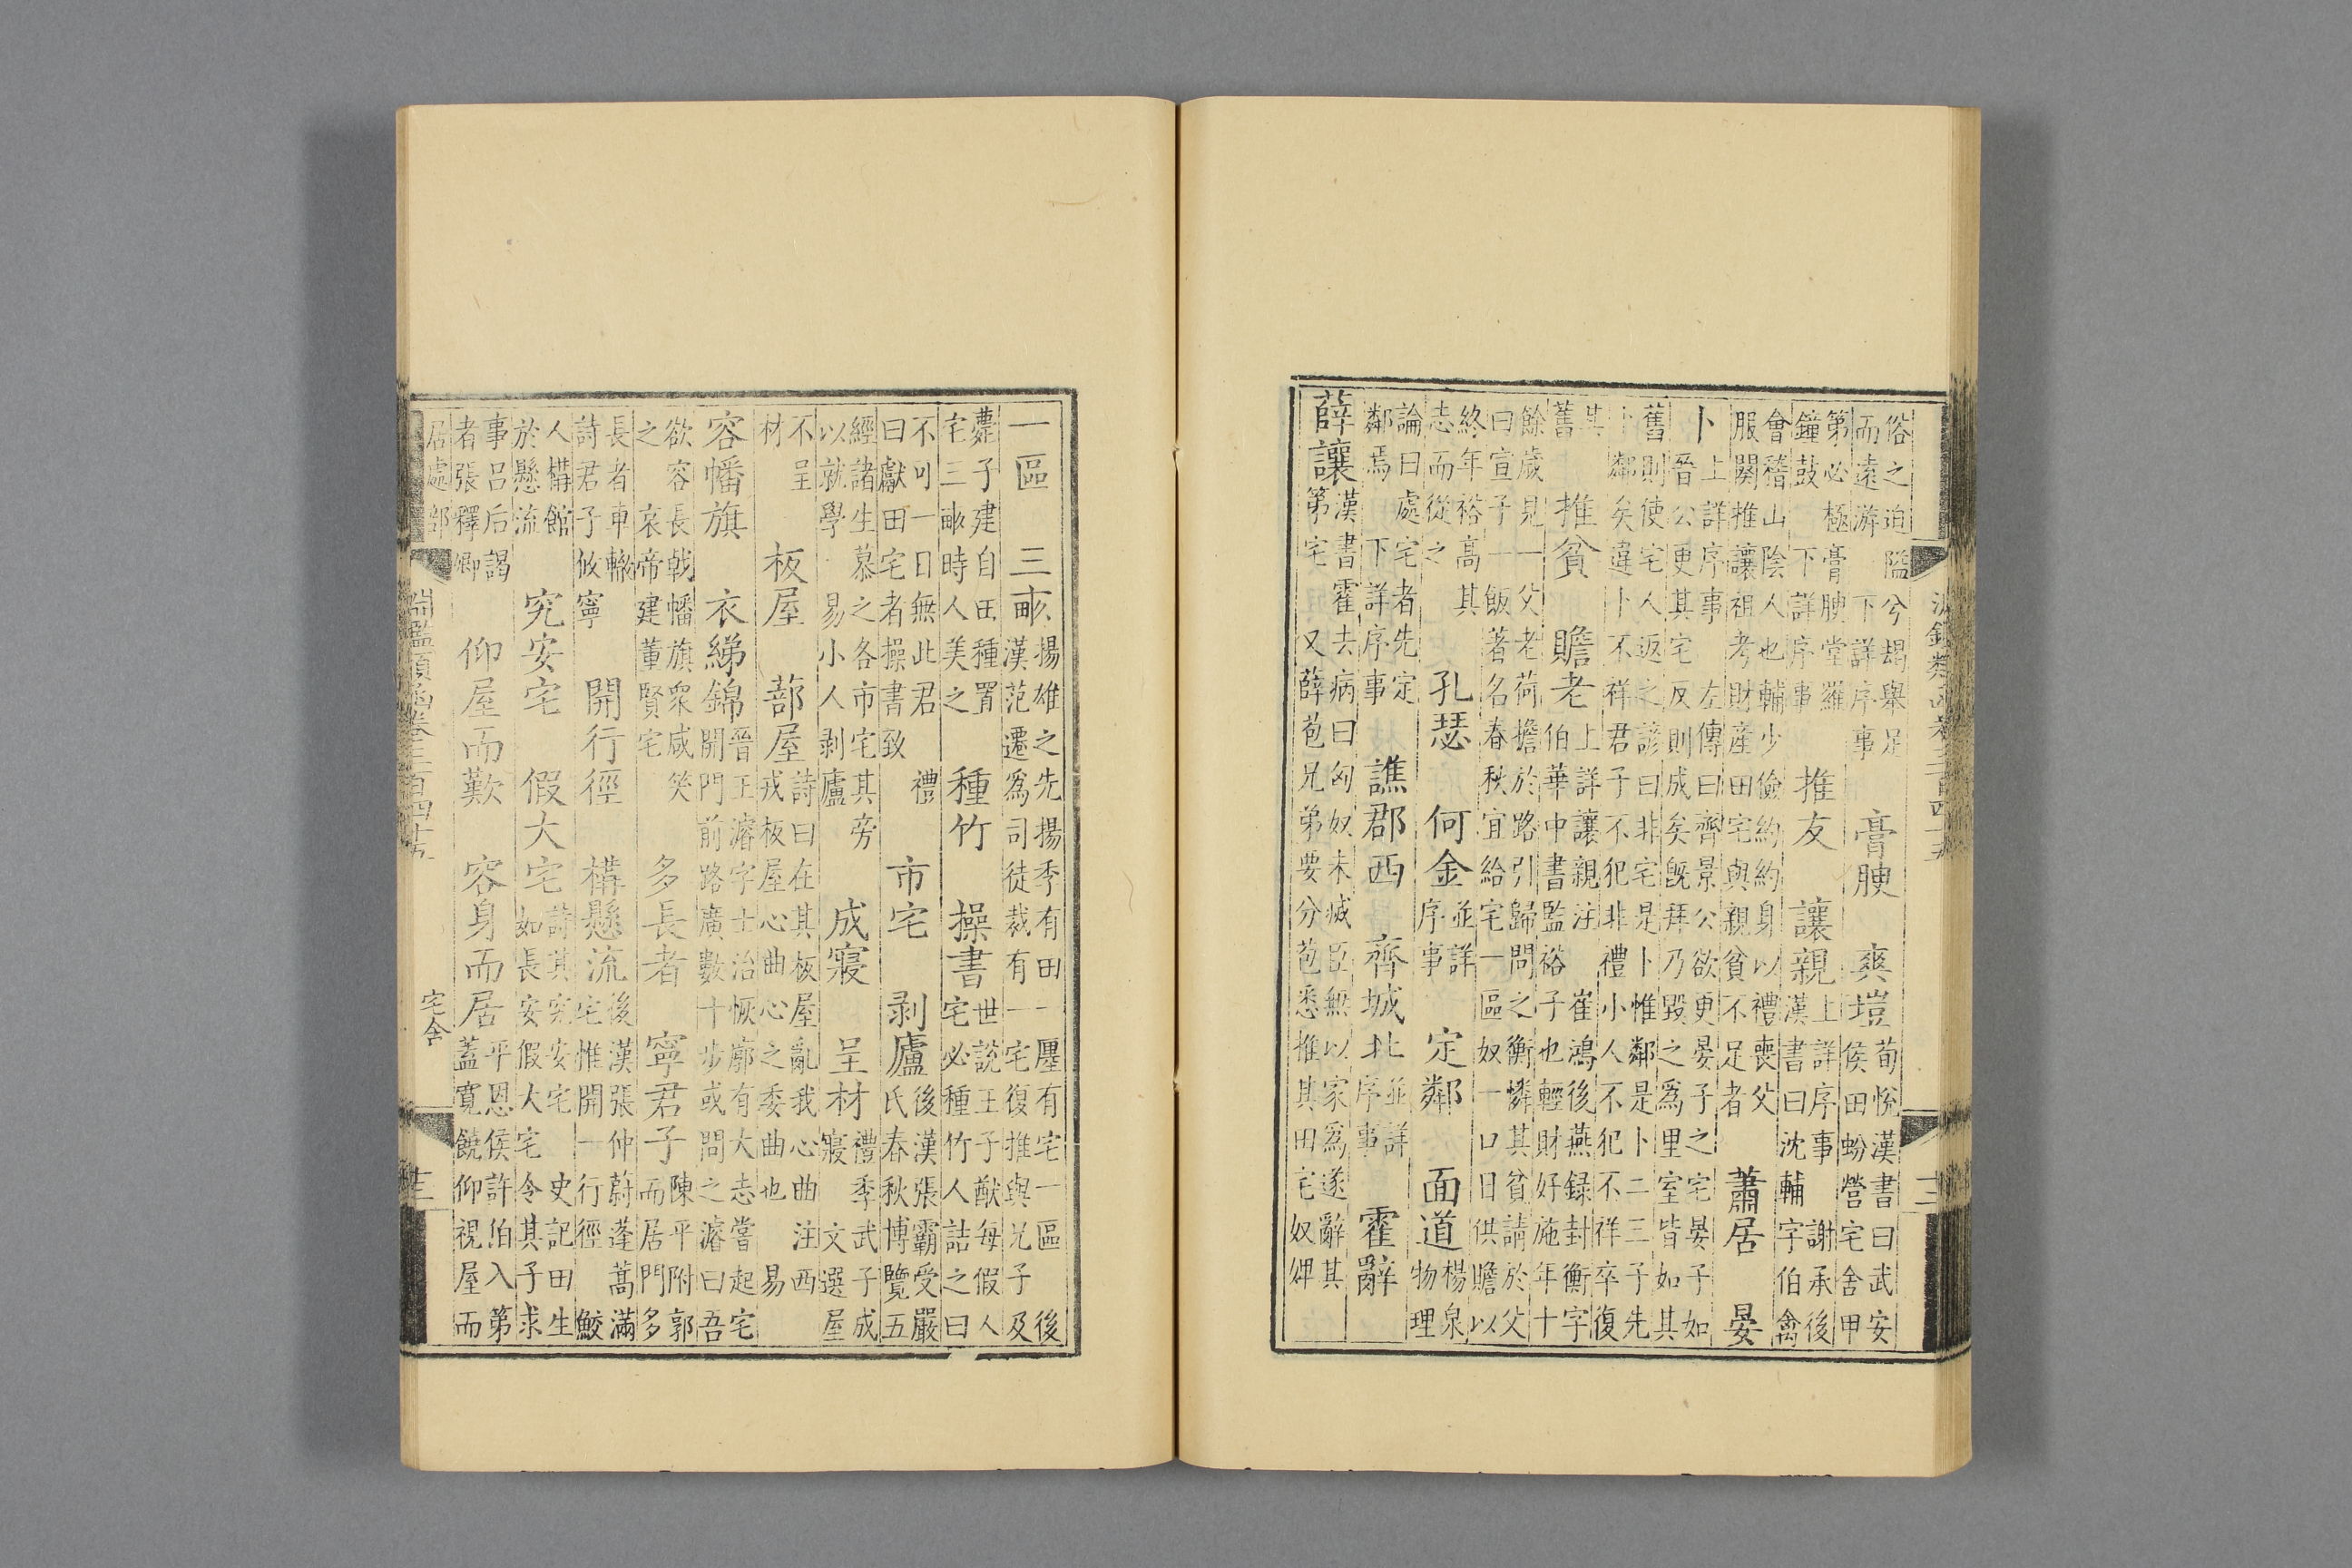 淵鑑類函卷三百四十五
俗之迫隘兮朅舉足
而遠游 下詳序事
膏腴 爽塏
荀悅漢書曰武安
侯田蚡營宅舍甲
第必極膏腴堂羅
鐘鼓 下詳序事
推友 讓親
上詳序事 謝承後
漢書曰沈輔字伯禽
會稽山陰人也輔少儉約約身以禮喪父
服闋推讓祖考財產田宅與親貧不足者
蕭居 晏
卜
上詳序事 左傳曰齊景公欲更晏子之宅晏子如
晉公更其宅反則成矣旣拜乃毀之爲里室皆如其
舊則使宅人返之諺曰非宅是卜惟鄰是卜二三子先
卜鄰矣違卜不祥君子不犯非禮小人不犯不祥卒復
其
舊
推貧 贍老
上詳讓親注 崔鴻後燕録封衡字
伯華中書監裕子也輕財好施年十
餘歲見一父老荷擔於路引歸問之衡憐其貧請於父
曰宣子一飯著名春秋宜給宅一區奴一口日供贍以
終年裕高其
志而從之
孔瑟 何金
並詳
序事
定鄰 面道
楊泉
物理
論曰處宅者先定
鄰焉 下詳序事
譙郡西 齊城北
並詳
序事
霍辭
薛讓
漢書霍去病曰匈奴未滅臣無以家爲遂辭其
第宅 又薛苞兄弟要分苞悉推其田宅奴婢
一區 三畝
揚雄之先揚季有田一㕓有宅一區 後
漢范遷爲司徒裁有一宅復推與兄子 及
薨子建自田種置
宅三畝時人美之
種竹 操書
世說王子猷每假人
宅必種竹人詰之曰
不可一日無此君 禮
曰獻田宅者操書致
市宅 剥廬
後漢張霸受嚴
氏春秋博覽五
經諸生慕之各市宅其旁
以就學 易小人剥廬
成寢 呈材
禮季武子成
寢 文選 屋
不呈
材
板屋 蔀屋
詩曰在其板屋亂我心曲 注西
戎板屋心曲心之委曲也 易
容幡旗 衣綈錦
晉王濬字士治恢廓有大志嘗起宅
開門前路廣數十步或問之濬曰吾
欲容長戟幡旗衆咸笑
之 哀帝建董賢宅
多長者 寧君子
陳平附郭
而居門多
長者車轍
詩君子攸寧
開行徑 構懸流
後漢張仲蔚蓬蒿滿
宅惟開一行徑 鮫
人構館
於懸流
究安宅 假大宅
詩其究安宅 史記田生
如長安假大宅令其子求
事呂后謁
者張釋卿
仰屋而歎 容身而居
平恩侯許伯入第
蓋寬饒仰視屋而
居處部
淵鑑類函卷三百四十五 宅舍